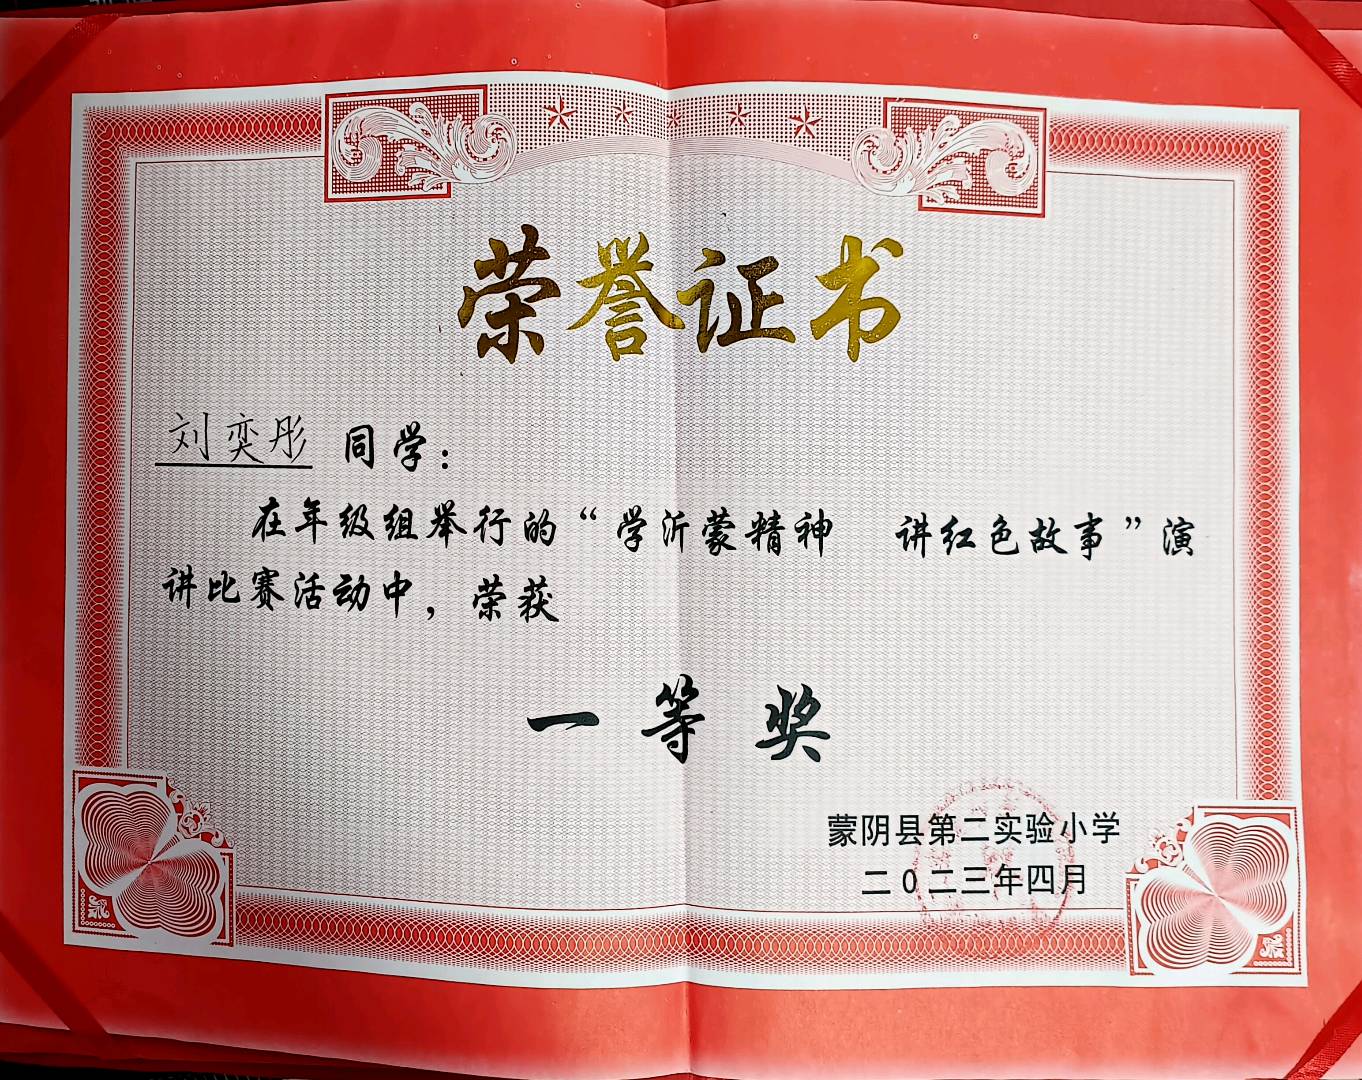 荣誉证书
刘奕彤 同学：
在年级组举行的“学沂蒙精神 讲红色故事”演
讲比赛活动中，荣获
一等奖
蒙阴县第二实验小学
二0二三年四月